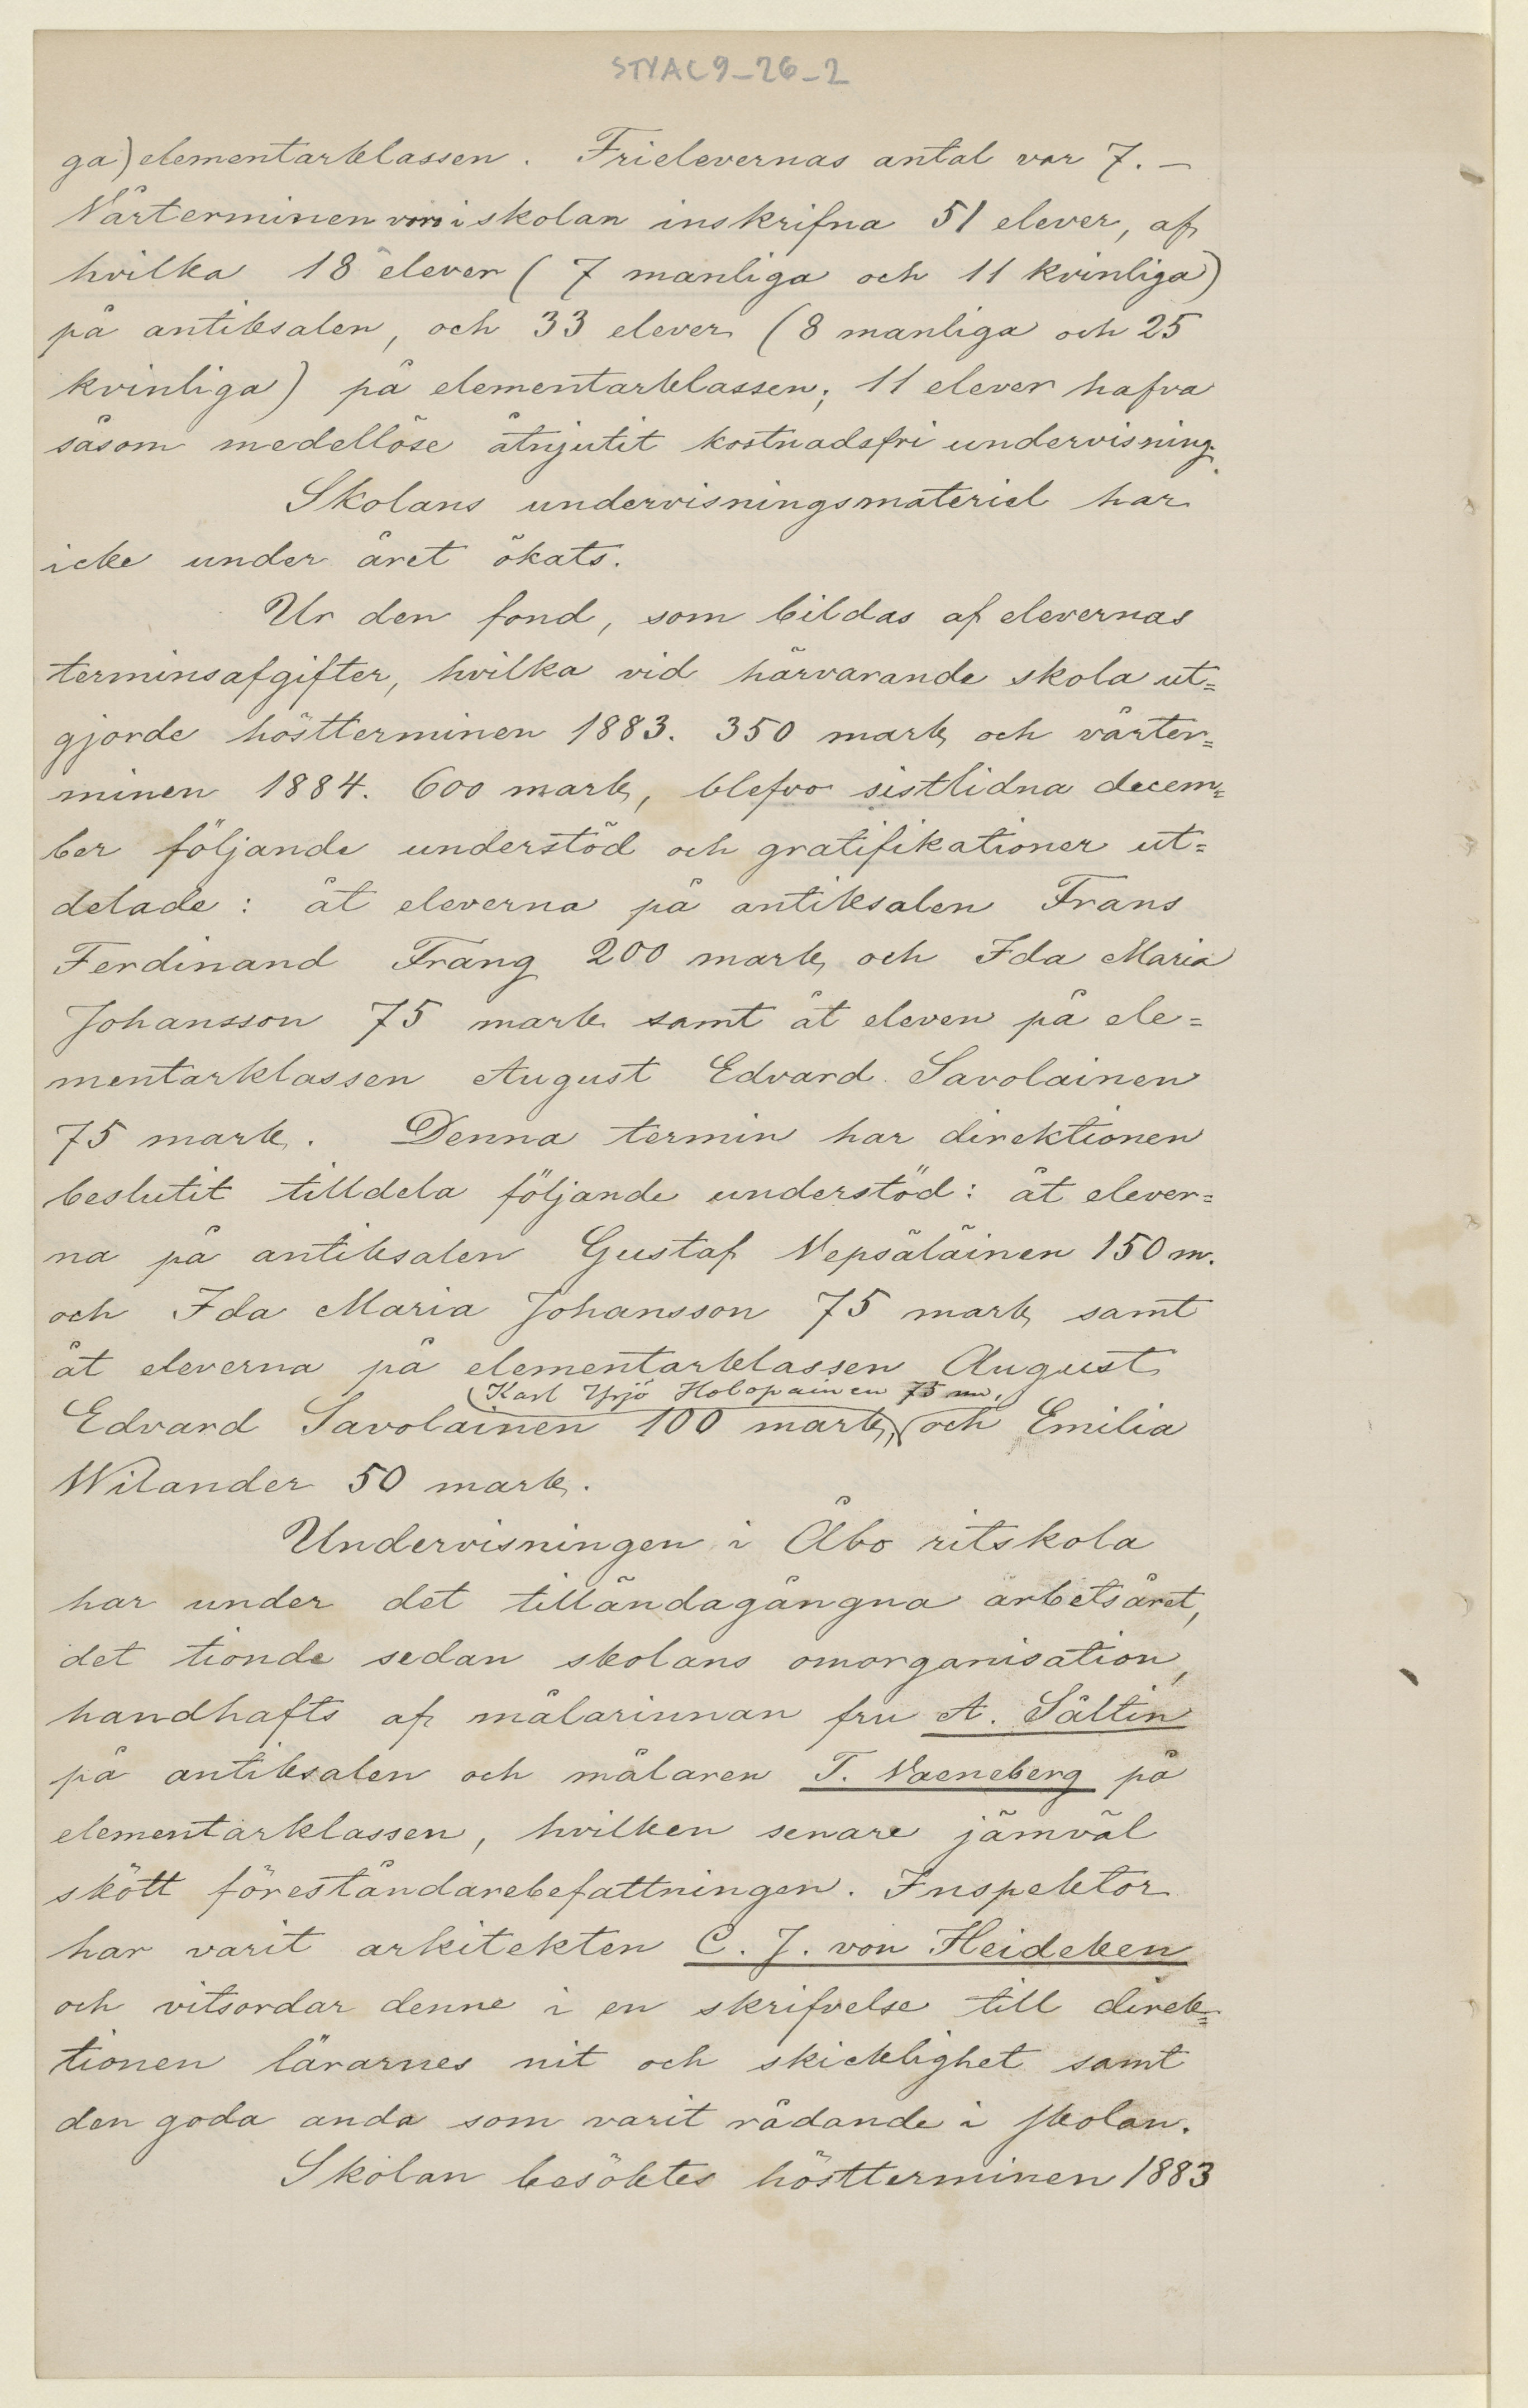 STYAC9_26_2
ga) elementarklassen. Frielevernas antal var 7. –
Vårterminen voro i skolan inskrifna 51 elever, af
hvilka 18 elever (7 manliga och 11 kvinliga)
på antiksalen, och 33 elever (8 manliga och 25
kvinliga) på elementarklassen; 11 elever hafva
såsom medellöse åtnjutit kostnadsfri undervisning.
Skolans undervisningsmateriel har
icke under året ökats.
Ur den fond, som bildas af elevernas
terminsafgifter, hvilka vid härvarande skola ut=
gjorde höstterminen 1883. 350 mark, och vårter=
minen 1884. 600 mark, blefvo sistlidna decem=
ber följande understöd och gratifikationer ut=
delade: åt eleverna på antiksalen Frans
Ferdinand Frang 200 mark, och Ida Maria
Johansson 75 mark samt åt eleven på ele=
mentarklassen August Edvard Savolainen
75 mark. Denna termin har direktionen
beslutit tilldela följande understöd: åt elever=
na på antiksalen Gustaf Vepsäläinen 150 m.
och Ida Maria Johansson 75 mark, samt
åt eleverna på elementarklassen August
Karl Yrjö Holopainen 75 m.
Edvard Savolainen 100 mark, och Emilia
Wilander 50 mark.
Undervisningen i Åbo ritskola
har under det tilländagångna arbetsåret,
det tionde sedan skolans omorganisation,
handhafts af målarinnan fru A. Sältin
på antiksalen och målaren T. Vaeneberg på
elementarklassen, hvilken senare jämväl
skött föreståndarebefattningen. Inspektor
har varit arkitekten C. J. von Heideken
och vitsordar denne i en skrifvelse till direk=
tionen lärarnes nit och skicklighet samt
den goda anda som varit rådande i skolan.
Skolan besöktes höstterminen 1883